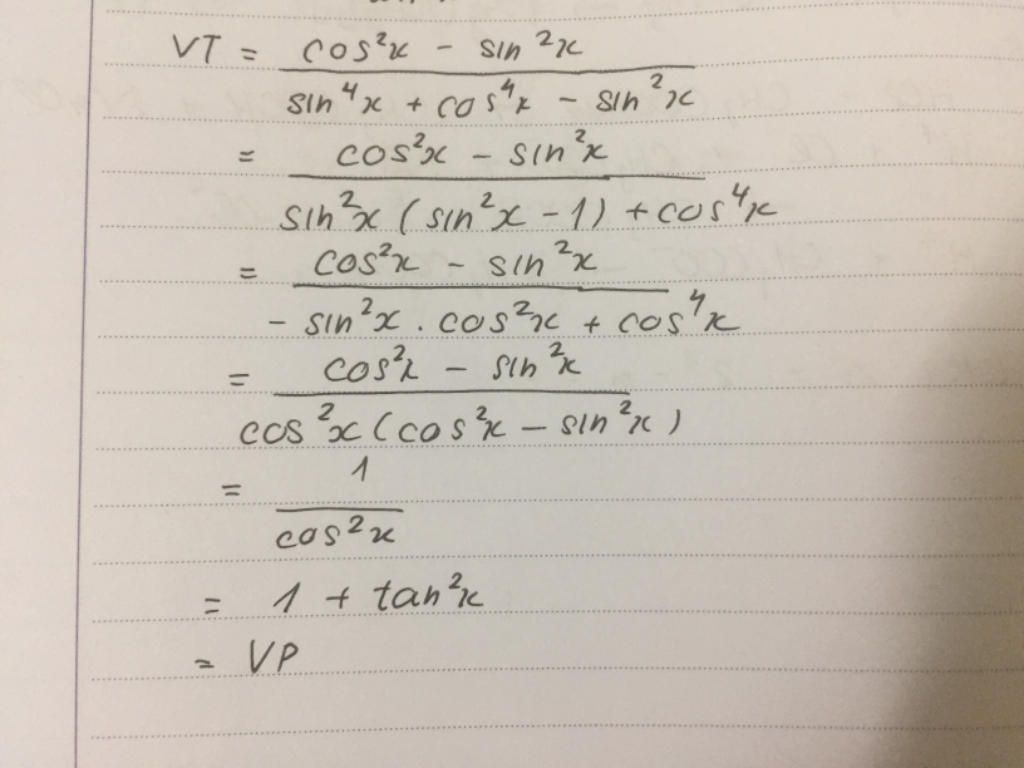 VT = cos²x - sin²x
sin⁴x + cos⁴x - sin²x
= cos²x - sin²x
sin²x (sin²x - 1) + cos⁴x
= cos²x - sin²x
- sin²x . cos²x + cos⁴x
= cos²x - sin²x
cos²x (cos²x - sin²x)
= 1
cos²x
= 1 + tan²x
= VP